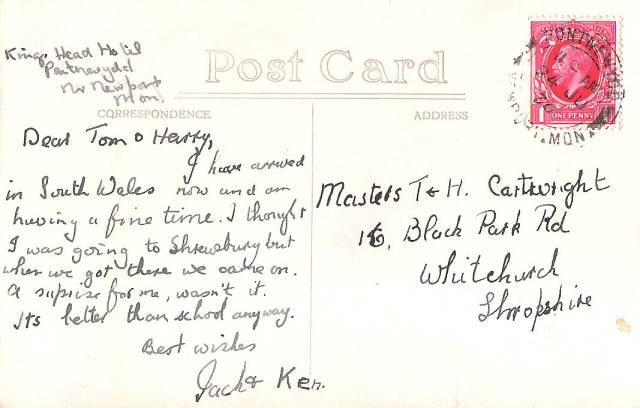 Kings Head Hotel
Pontnewydd
Nr Newport
Mon
Post Card
CORRESPONDENCE
ADDRESS
Dear Tom & Harry,
I have arrived
in South Wales now and am
having a fine time. I thought
I was going to Shrewsbury but
when we got there we came on.
A suprise for me, wasn't it.
Its better than school anyway.
Best wishes
Jack & Ken.
Masters T & H. Cartwright
16, Black Park Rd
Whitchurch
Shropshire
1 ONE PENNY 1
NEWPORT. MON